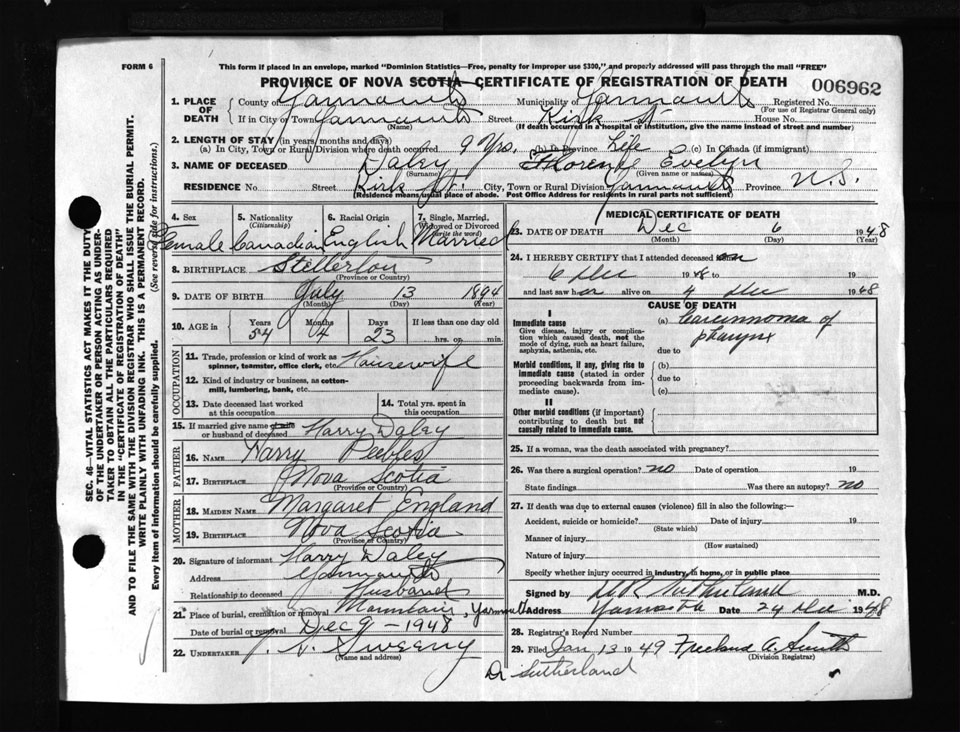 FORM 6
This form if placed in an envelope, marked "Dominion Statistics—Free, penalty for improper use $300," and properly addressed will pass through the mail "FREE"
PROVINCE OF NOVA SCOTIA—CERTIFICATE OF REGISTRATION OF DEATH
006962
1. PLACE OF DEATH
County of Yarmouth Municipality of Yarmouth Registered No.
(For use of Registrar General only)
If in City or Town Yarmouth Street Kirk St. House No.
(Name) (If death occurred in a hospital or institution, give the name instead of street and number)
2. LENGTH OF STAY (in years, months and days)
(a) In City, Town or Rural Division where death occurred 9 Yrs. (b) In Province Life (c) In Canada (if immigrant)
3. NAME OF DECEASED Daley Florence Evelyn
(Surname) (Given name or names)
RESIDENCE No. Street Kirk St. City, Town or Rural Division Yarmouth Province N.S.
Residence means usual place of abode. Post Office Address for residents in rural parts not sufficient)
4. Sex Female
5. Nationality (Citizenship) Canadian
6. Racial Origin English
7. Single, Married, Widowed or Divorced (write the word) Married
8. BIRTHPLACE Stellerton
(Province or Country)
9. DATE OF BIRTH July 13 1894
(Month) (Day) (Year)
10. AGE in Years Months Days If less than one day old
54 4 23 hrs. or min.
OCCUPATION
11. Trade, profession or kind of work as spinner, teamster, office clerk, etc. Housewife
12. Kind of industry or business, as cotton-mill, lumbering, bank, etc.
13. Date deceased last worked at this occupation
14. Total yrs. spent in this occupation
15. If married give name of wife or husband of deceased Harry Daley
FATHER
16. NAME Harry Peebles
17. BIRTHPLACE Nova Scotia
(Province or Country)
MOTHER
18. MAIDEN NAME Margaret England
19. BIRTHPLACE Nova Scotia
(Province or Country)
20. Signature of informant Harry Daley
Address Yarmouth
Relationship to deceased Husband
21. Place of burial, cremation or removal Mountain, Yarmouth
Date of burial or removal Dec 9 - 1948
22. UNDERTAKER Sweeny
(Name and address)
MEDICAL CERTIFICATE OF DEATH
23. DATE OF DEATH Dec 6 1948
(Month) (Day) (Year)
24. I HEREBY CERTIFY that I attended deceased on
6 Dec 1948 19
and last saw her alive on 4 Dec 1948
CAUSE OF DEATH
I
Immediate cause
Give disease, injury or complication which caused death, not the mode of dying, such as heart failure, asphyxia, asthenia, etc.
(a) Carcinnoma of pharynx
due to
Morbid conditions, if any, giving rise to immediate cause (stated in order proceeding backwards from immediate cause).
(b)
due to
(c)
II
Other morbid conditions (if important) contributing to death but not causally related to immediate cause.
25. If a woman, was the death associated with pregnancy?
26. Was there a surgical operation? no Date of operation 19
State findings Was there an autopsy? no
27. If death was due to external causes (violence) fill in also the following:—
Accident, suicide or homicide? Date of injury 19
(State which)
Manner of injury
(How sustained)
Nature of injury
Specify whether injury occurred in industry, in home, or in public place
Signed by M.D.
Address Date 24 Dec 1948
28. Registrar's Record Number
29. Filed Jan 13 1949 Freeland A. Smith
(Division Registrar)
Dr Sutherland
SEC. 46—VITAL STATISTICS ACT MAKES IT THE DUTY OF THE UNDERTAKER OR PERSON ACTING AS UNDERTAKER TO OBTAIN ALL THE PARTICULARS REQUIRED IN THE "CERTIFICATE OF REGISTRATION OF DEATH" AND TO FILE THE SAME WITH THE DIVISION REGISTRAR WHO SHALL ISSUE THE BURIAL PERMIT.
WRITE PLAINLY WITH UNFADING INK. THIS IS A PERMANENT RECORD.
Every item of information should be carefully supplied. (See reverse side for instructions.)